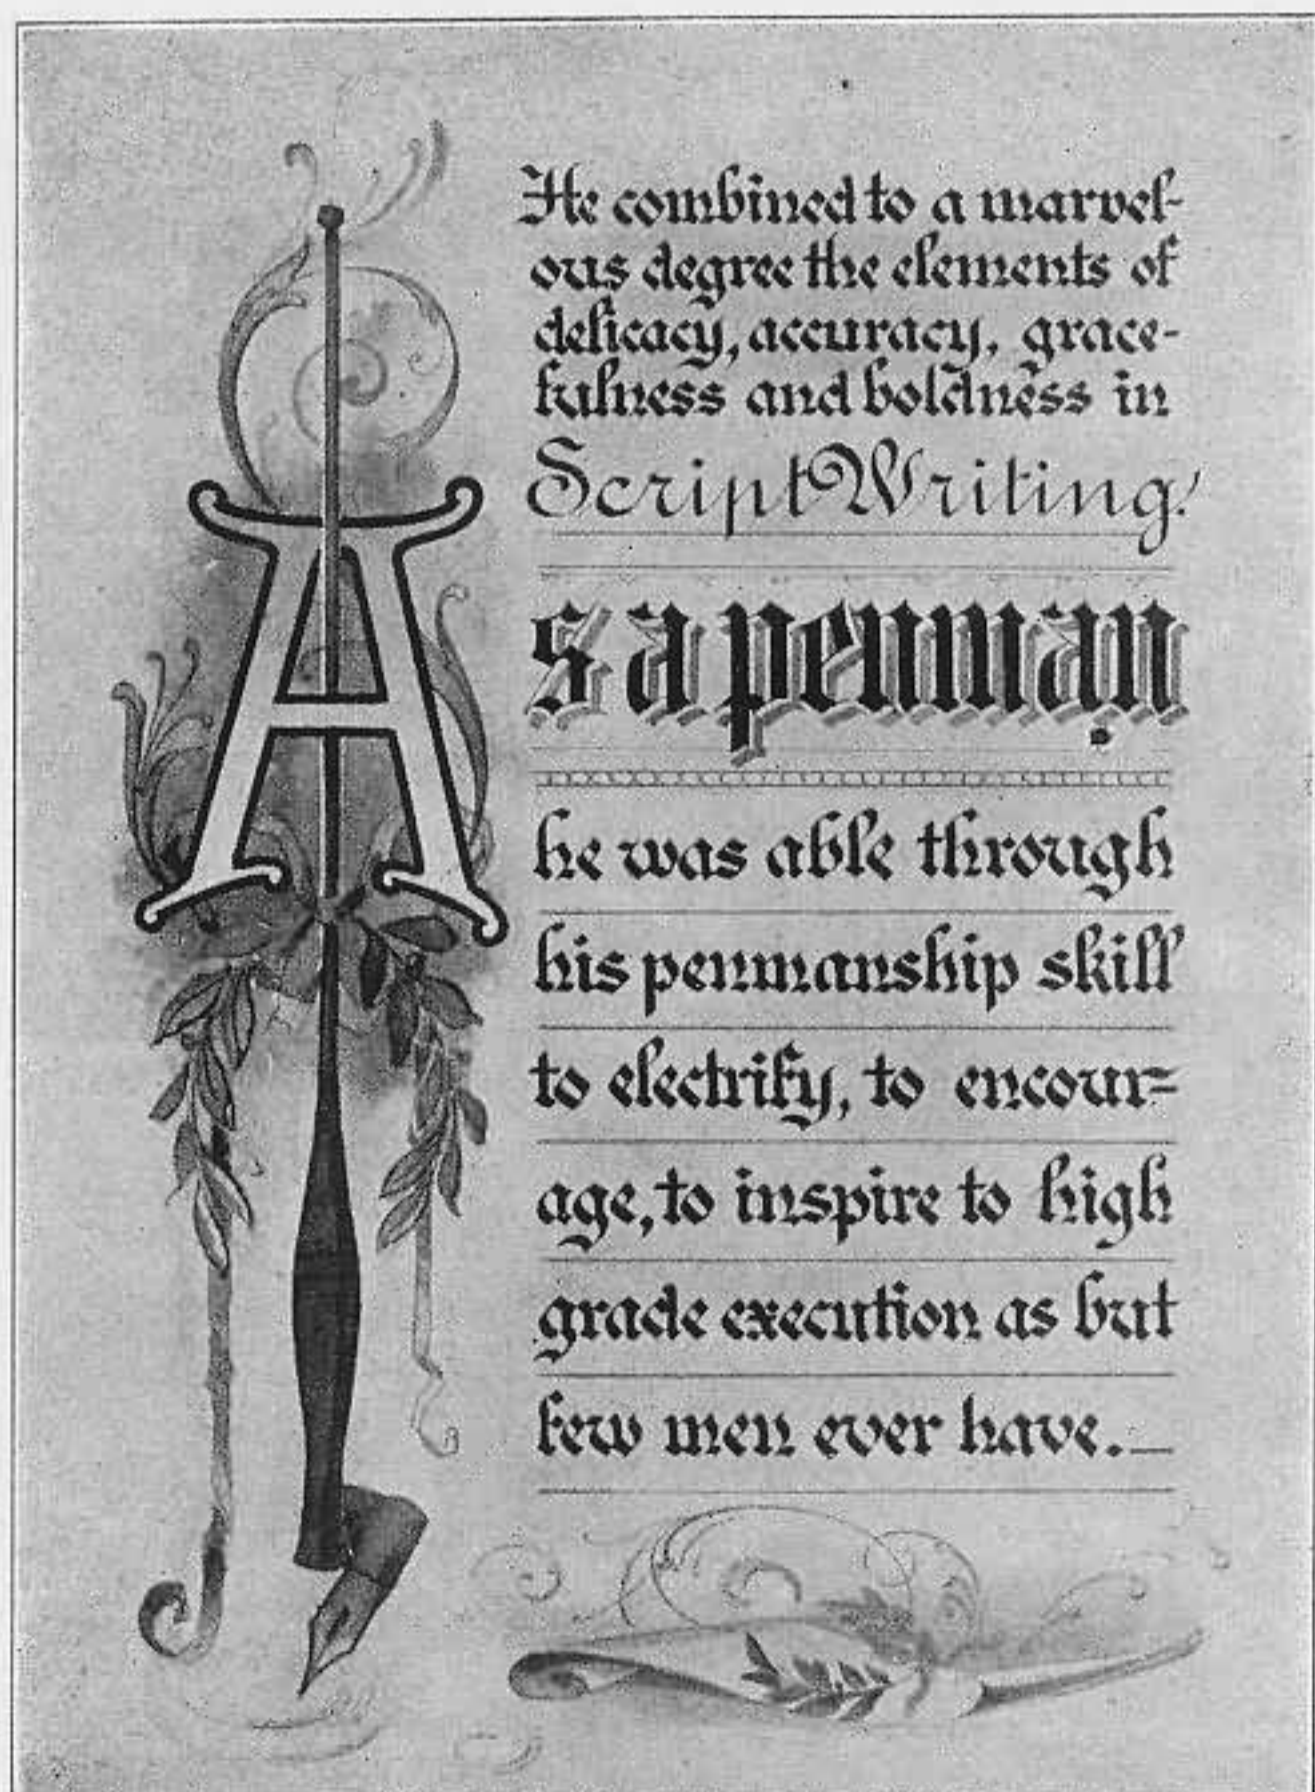 He combined to a marvel-
ous degree the elements of
delicacy, accuracy, grace-
fulness and boldness in
Script Writing.
As a penman
he was able through
his penmanship skill
to electrify, to encour=
age, to inspire to high
grade execution as but
few men ever have.